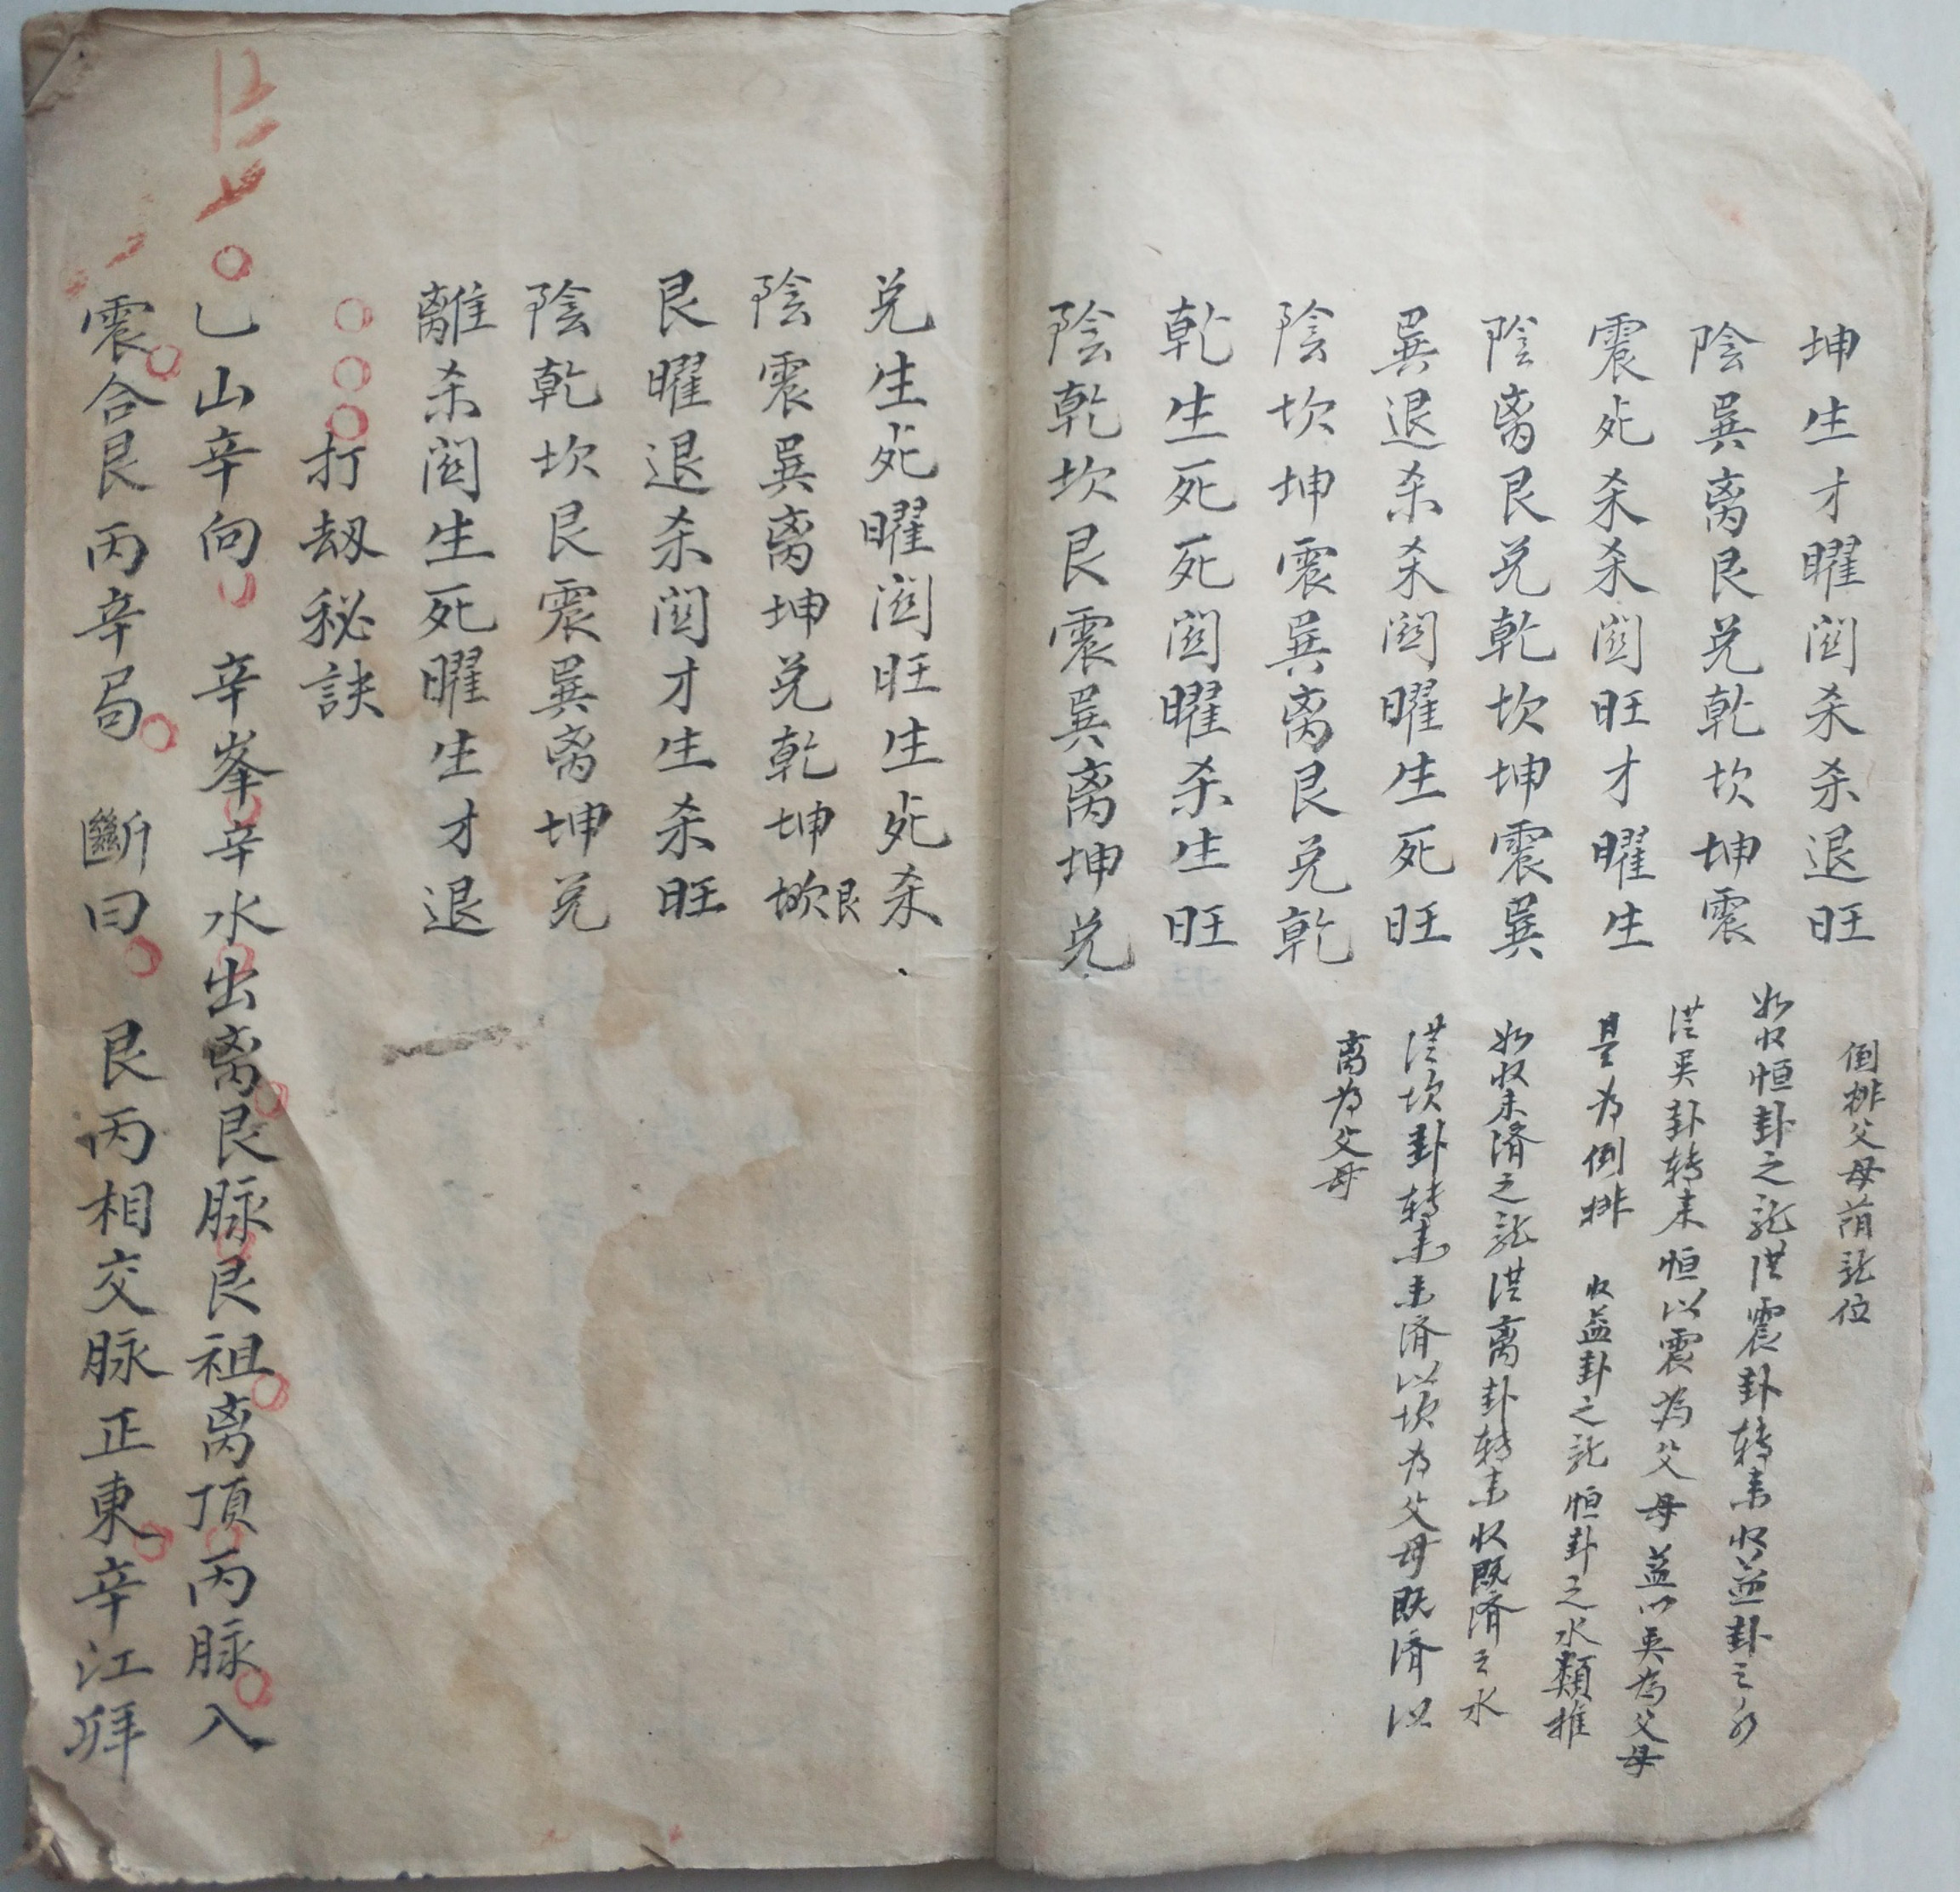 坤生才曜関杀杀退旺
陰巽离艮兑乾坎坤震
震死杀杀関旺才曜生
陰离艮兑乾坎坤震巽
巽退杀杀関曜生死旺
陰坎坤震巽离艮兑乾
乾生死死関曜杀生旺
陰乾坎艮震巽离坤兑
倒排父母荫龍位
如收恒卦之龍從震卦转来收益卦之水
從巽卦转来恒以震為父母益以巽為父母
是为倒排 收益卦之龍恒卦之水類推
如収未済之龍從离卦转来收既済之水
從坎卦转来未済以坎为父母既済以
离为父母
兑生死曜関旺生死杀
陰震巽离坤兑乾坤坎艮
艮曜退杀関才生杀旺
陰乾坎艮震巽离坤兑
離杀関生死曜生才退
打刼秘訣
乙山辛向 辛峯辛水出离艮脉艮祖离頂丙脉入
震合艮丙辛局 斷曰 艮丙相交脉正東辛江拜